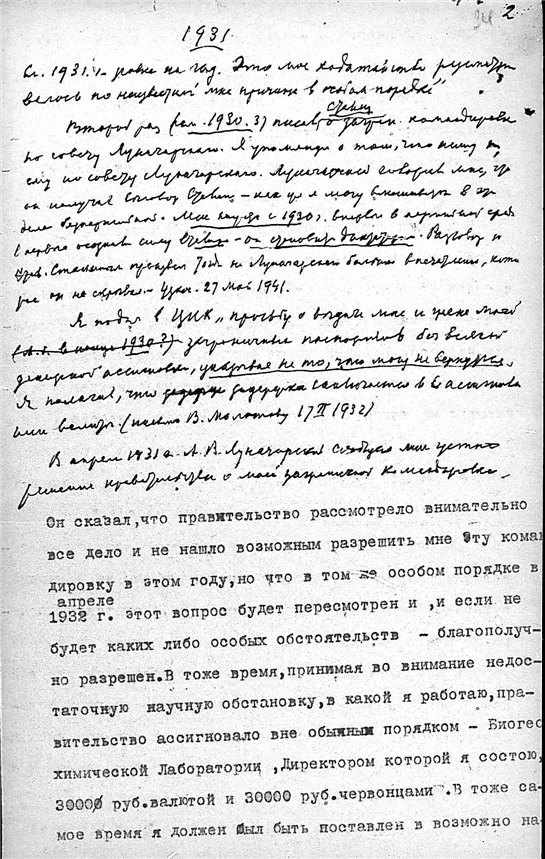 2
1931
1931 г. на год. Это мое ходатайство рассматри
валось по неизвестной мне причине в особом порядке"
Сталину
Второй раз 1930 писал о загран. командировке
по совету Луначарского. Я упоминаю о том, что пишу
ему по совету Луначарского. Луначарский говорил мне, что
он получил выговор Сталина - как он я могу вмешиваться в эти
дела беспартийной. Мне кажется с 1930 г. впервые в партийной среде
я впервые осознал силу Сталина - он становился диктатором. Разговор
Сталина произвел тогда на Луначарского большое впечатление, кото
рое он не скрывал - Узкое. 27 мая 1941.
Я подал в ЦИК „просьбу о выдаче мне и жене моей
(в конце 1930?) заграничных паспортов без всякой
денежной ассигновки, указывая на то, что могу не вернуться.
Я полагаю, что задержка заключается в ассигновании
валюты (письмо В. Молотову 17 II 1932)
В апреле 1931 г. А. В. Луначарский сообщил мне устно
решение правительства о моей заграничной командировке.
Он сказал,что правительство рассмотрело внимательно
все дело и не нашло возможным разрешить мне эту коман
дировку в этом году,но что в том же особом порядке в
апреле
1932 г. этот вопрос будет пересмотрен и ,и если не
будет каких либо особых обстоятельств - благополуч-
но разрешен.В тоже время,принимая во внимание недос-
таточную научную обстановку,в какой я работаю,пра-
вительство ассигновало вне обычным порядком - Биогео
химической Лаборатории ,Директором которой я состою,
30000 руб.валютой и 30000 руб.червонцами".В тоже са-
мое время я должен был быть поставлен в возможно на-